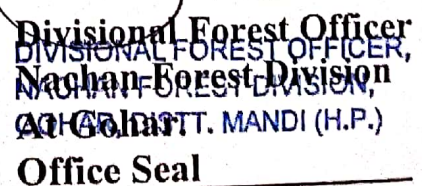 Divisional Forest Officer
DIVISIONAL FOREST OFFICER,
Nachan Forest Division
NACHAN FOREST DIVISION,
At Gohar.
GOHAR, DISTT. MANDI (H.P.)
Office Seal